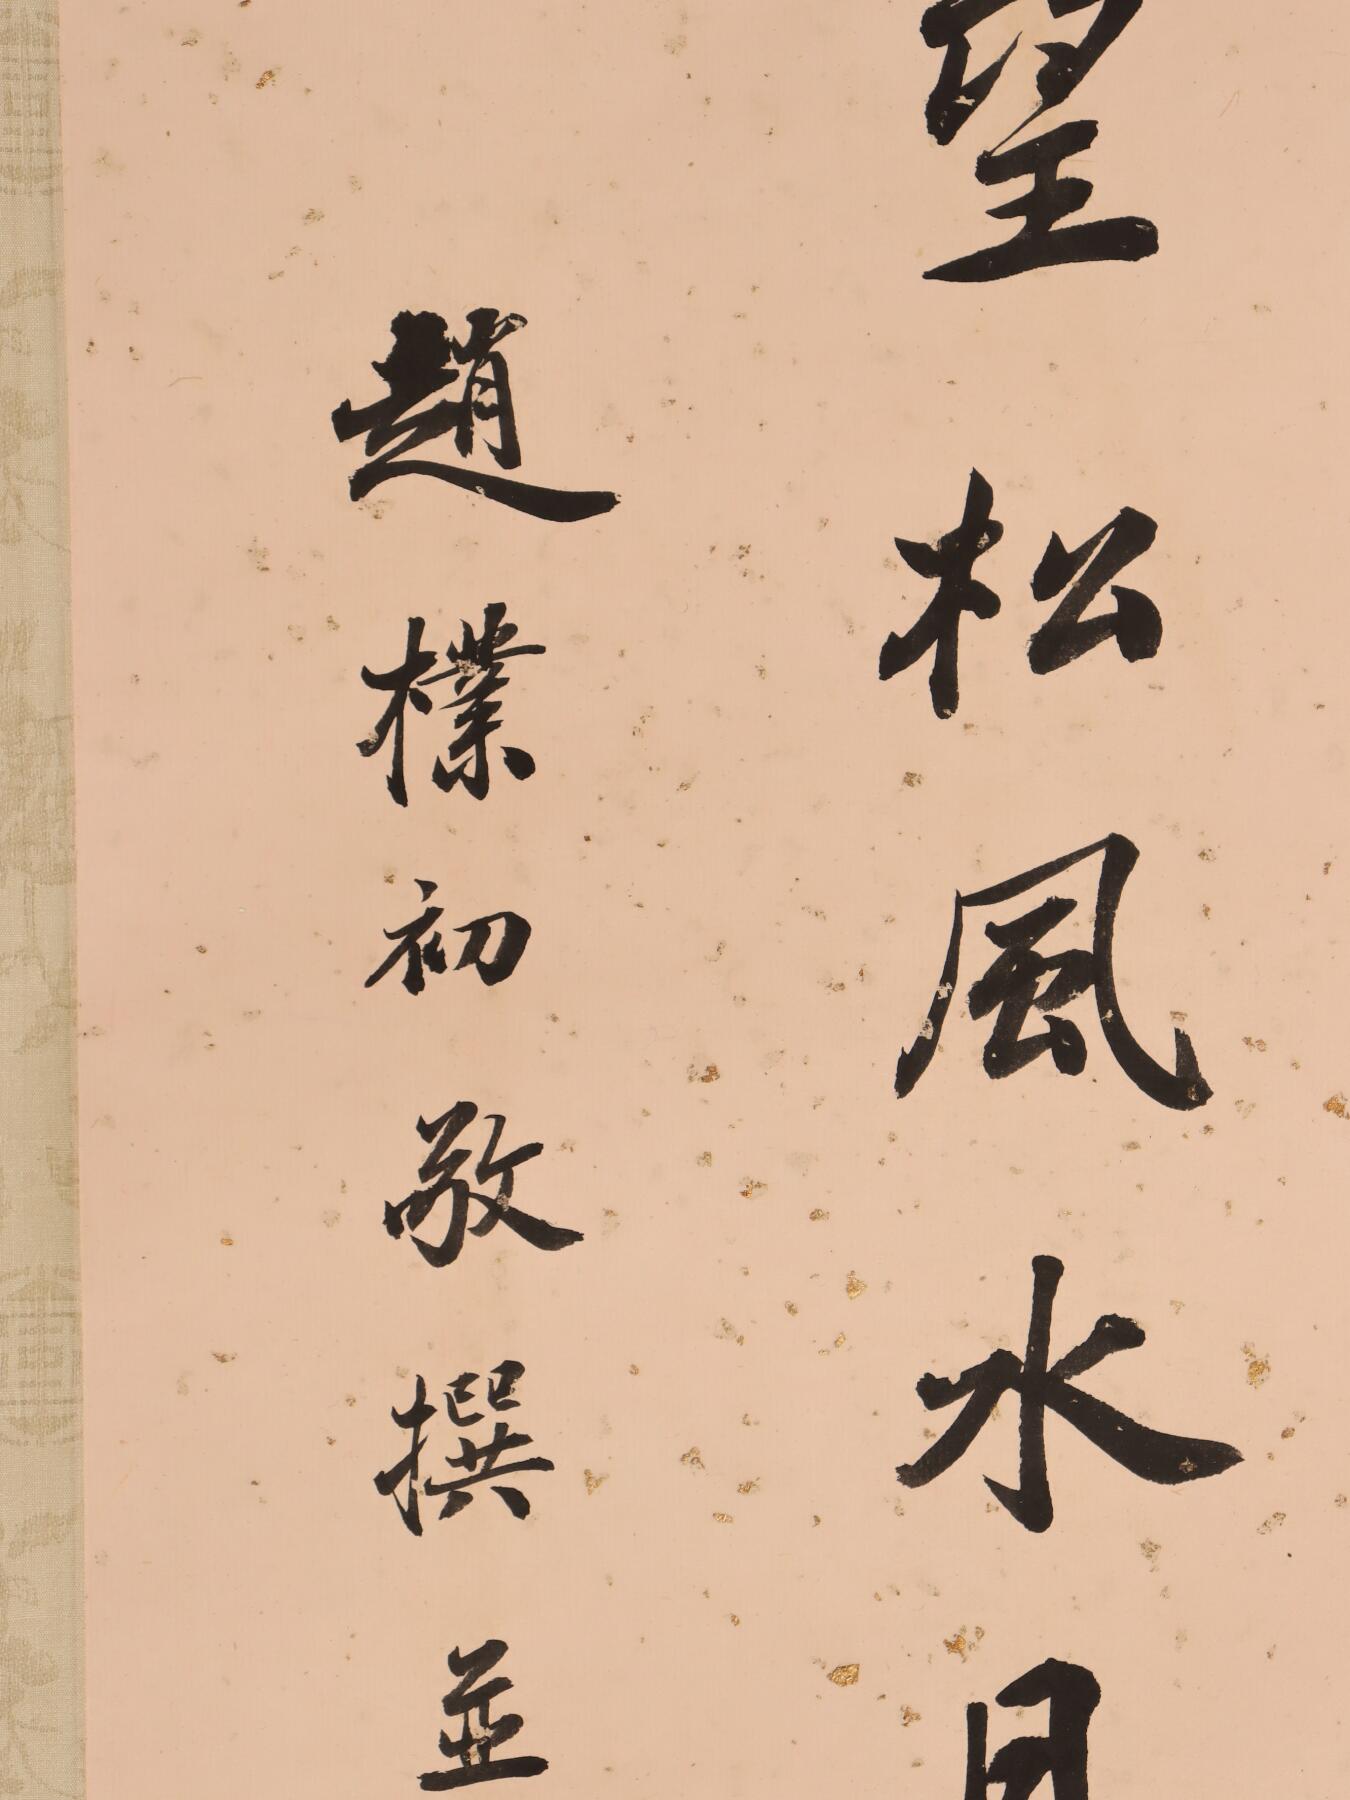 望松風水月
趙樸初敬撰並